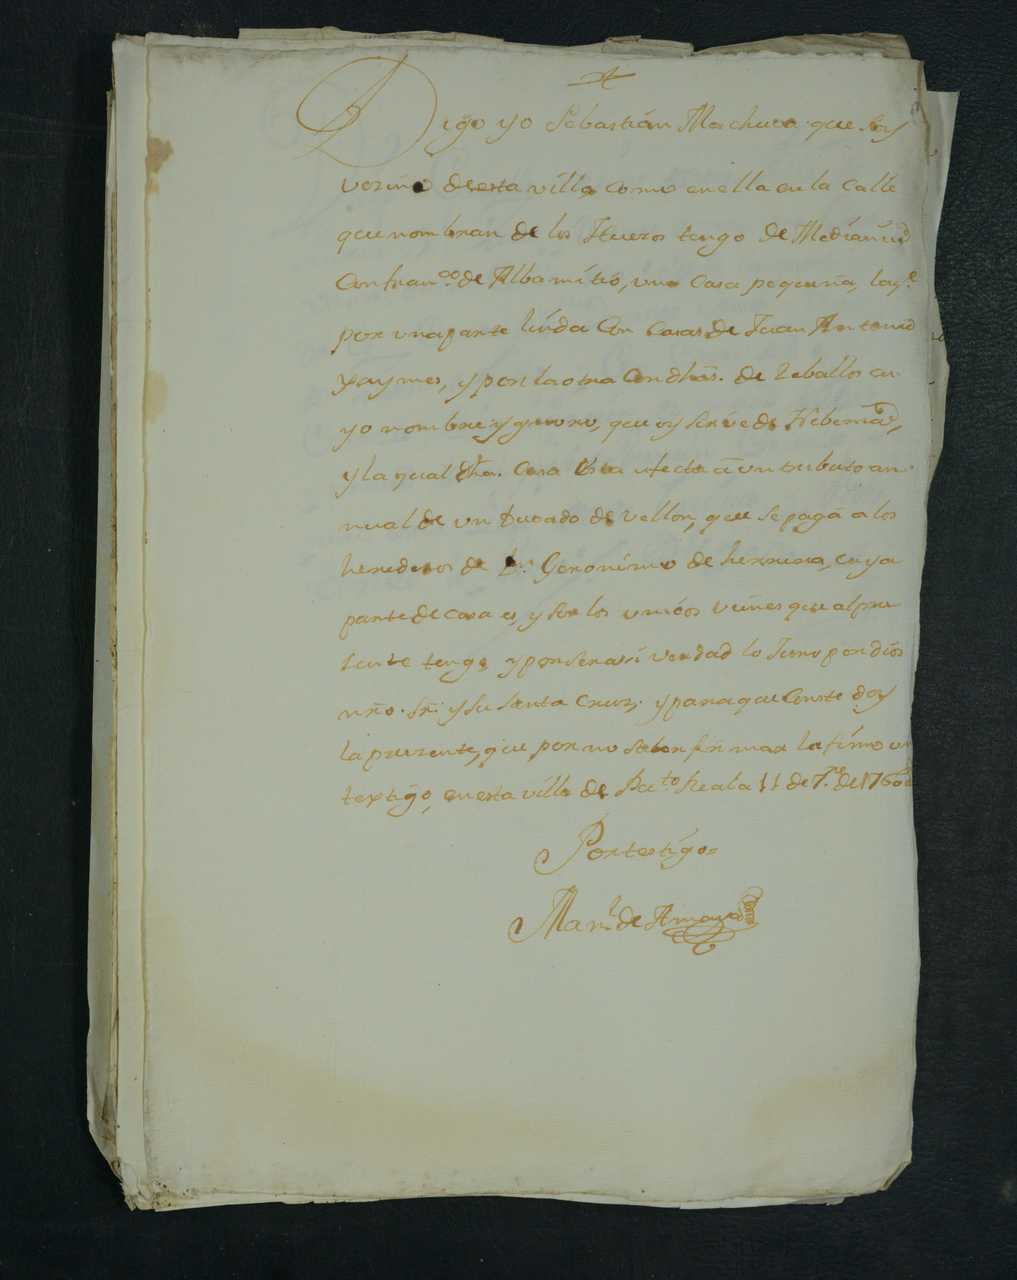 Digo yo Sebastián Machuca que soy
vezino de esta villa como en ella en la calle
que nombran de los Huesos tengo de Medianīd
con Fran.co de Albamitio, una Casa pequeña, la q.e
por una parte linda con casas de Juan Antonio
Xaymes, y por la otra con dhãs. de Zeballos cu
yo nombre ygnoro, que oy sirve de
y la qual dha. Casa esta afecta a un tributo an
nual de un Ducado de vellon, que se paga a los
herederos de Dn. Geronimo de herrera, cuya
parte de casa es, y son los unicos vienes que al pre
sente tengo, y por ser assi verdad lo Juro por dios
nrõ. Sr. y su santa Cruz, y para que Conste doy
la presente, que por no saber firmar la firmo un
textigo, en esta villa de Pu.to Real a 11 de 7.re de 1760
Por testigo
Man.l de Amaya